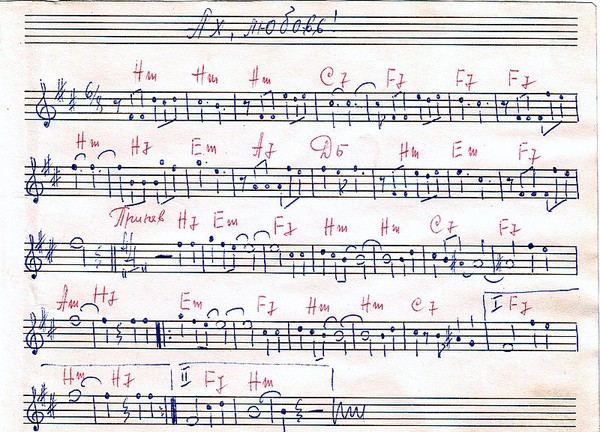 Ах, любовь!
6/8 Hm Hm Hm C7 F7 F7 F7
Hm H7 Em A7 Dб Hm Em F7
Припев H7 Em F7 Hm Hm C7 F7
Am H7 Em F7 Hm Hm C7 I F7
Hm H7 II F7 Hm